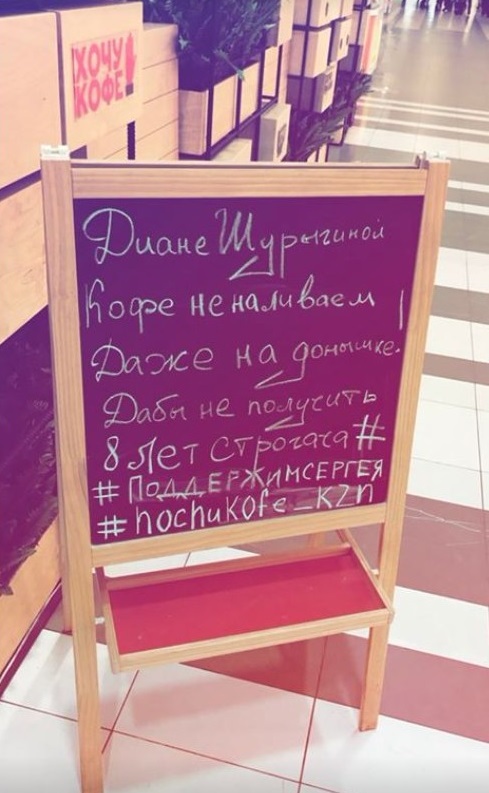 ХОЧУ
КОФЕ!
Диане Шурыгиной
Кофе не наливаем !
Даже на донышке.
Дабы не получить
8 лет строгача #
#ПОДДЕРЖИМСЕРГЕЯ
#hochuKofe_KZn